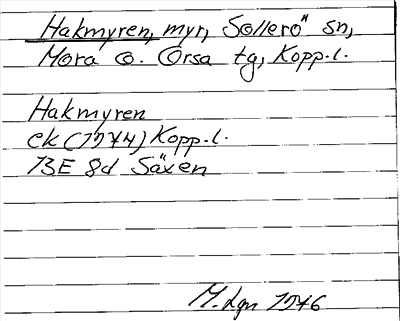 Hakmyren, myr, Sollerö sn,
Mora o. Orsa tg, Kopp.l.
Hakmyren
ek (1974) Kopp.l.
13E 8d Säxen
M.Lgn 1976